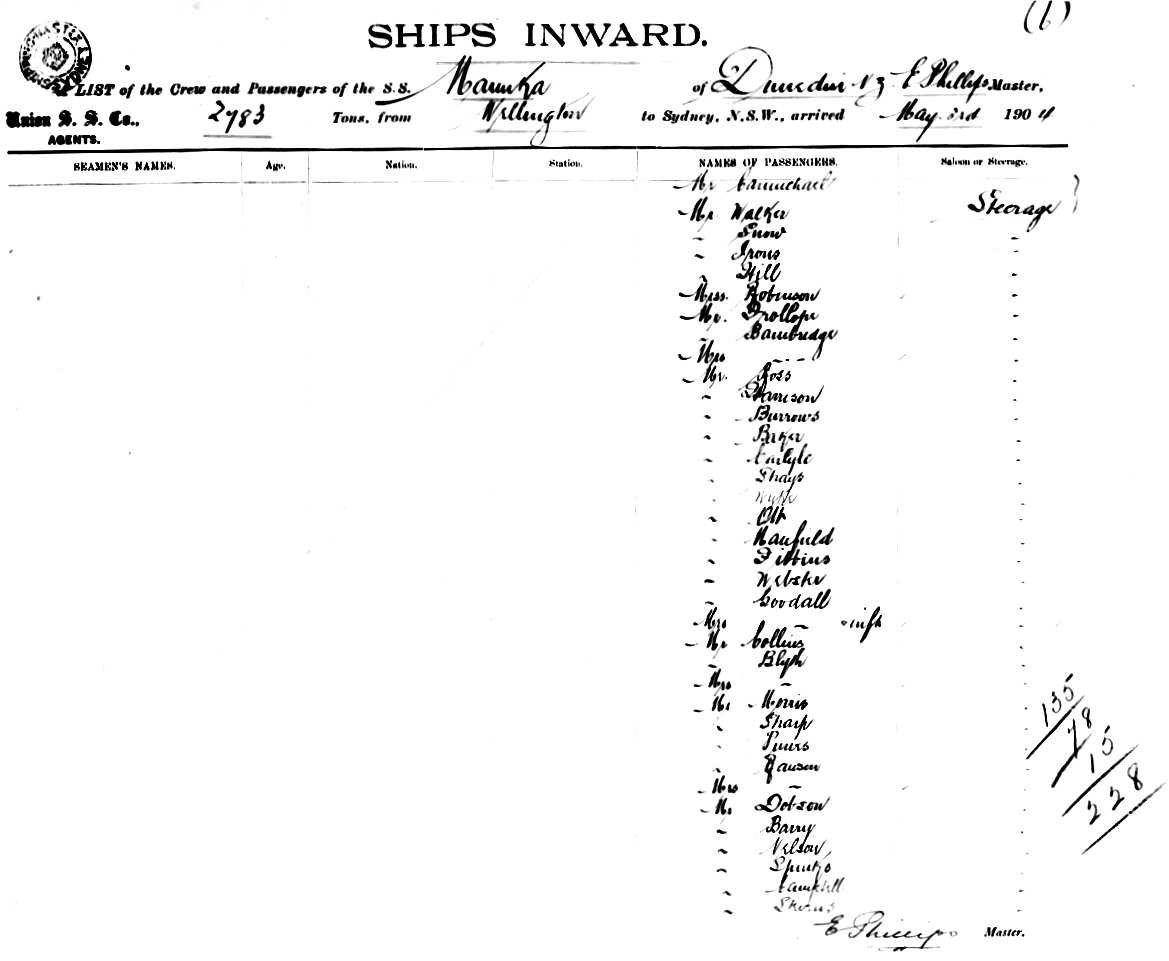 (6)
SHIPS INWARD.
A LIST of the Crew and Passengers of the S.S. Manuka of Dunedin NZ E Phillips Master,
Union S. S. Co., 2783 Tons, from Wellington to Sydney, N.S.W., arrived May 3rd 1904
AGENTS.
SEAMEN'S NAMES. Age. Nation. Station. NAMES OF PASSENGERS. Saloon or Steerage.
Mr Carmichael
Mr Walker Steerage
" Snow "
" Irons "
" Hill "
Miss Robinson "
Mr. Trollope "
" Bambridge "
Mrs -
Mr. Ross "
" Harrison "
" Burrows "
" Baker "
" Carlyle "
" Shays "
"
" Ott "
" Manfield "
" Tibbins "
" Webster "
" Goodall "
Mrs - & inft
Mr Collins "
" Blyth "
Mrs -
Mr Morris "
" Sharp "
"
"
Mrs -
Mr Dobson "
" Barry "
" Nelson "
" Spinks "
" Campbell "
"
135
78
15
228
E Phillips Master.